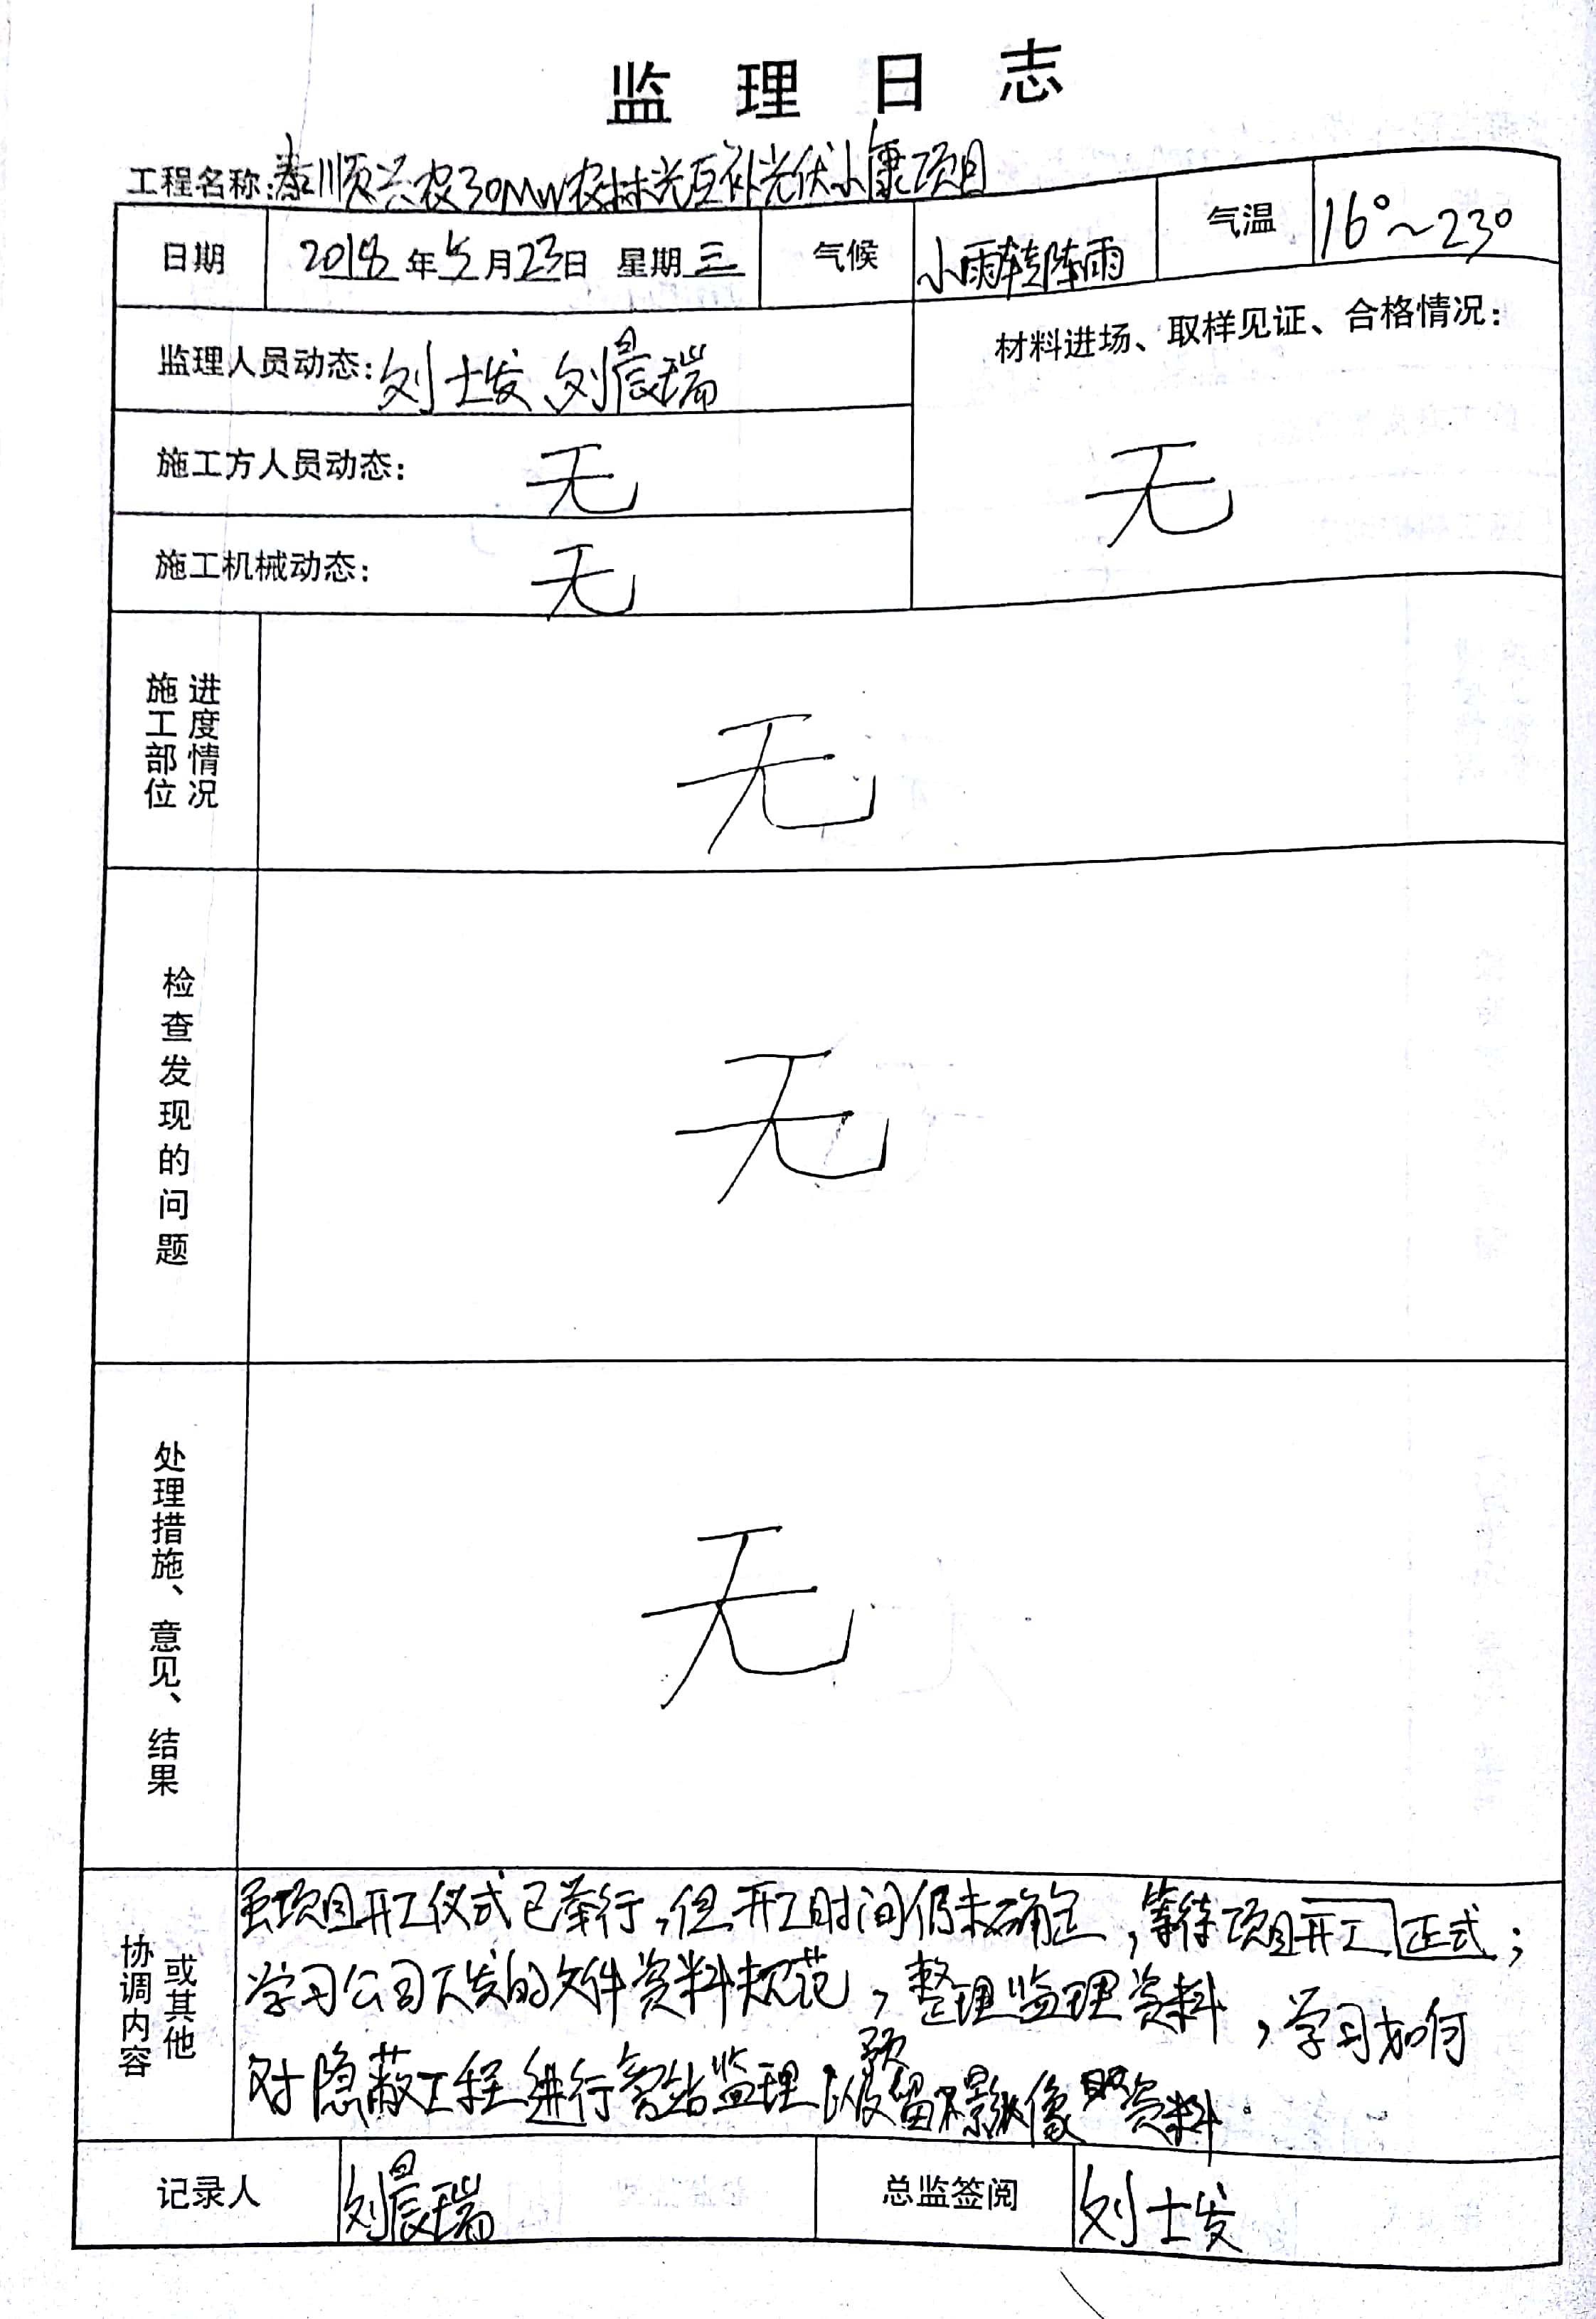 监理日志
工程名称:泰顺兴农30MW农林光互补光伏小康项目
日期 2018年5月23日 星期三 气候 小雨转阵雨 气温 16°~23°
监理人员动态:刘士发、刘晨瑞
材料进场、取样见证、合格情况:
无
施工方人员动态: 无
施工机械动态: 无
施工部位 进度情况
无
检查发现的问题
无
处理措施、意见、结果
无
协调内容 或其他
虽项目开工仪式已举行,但开工时间仍未确定,等待项目开工正式;
学习公司下发的文件资料规范,整理监理资料,学习如何
对隐蔽工程进行旁站监理以及预留影像资料.
记录人 刘晨瑞 总监签阅 刘士发